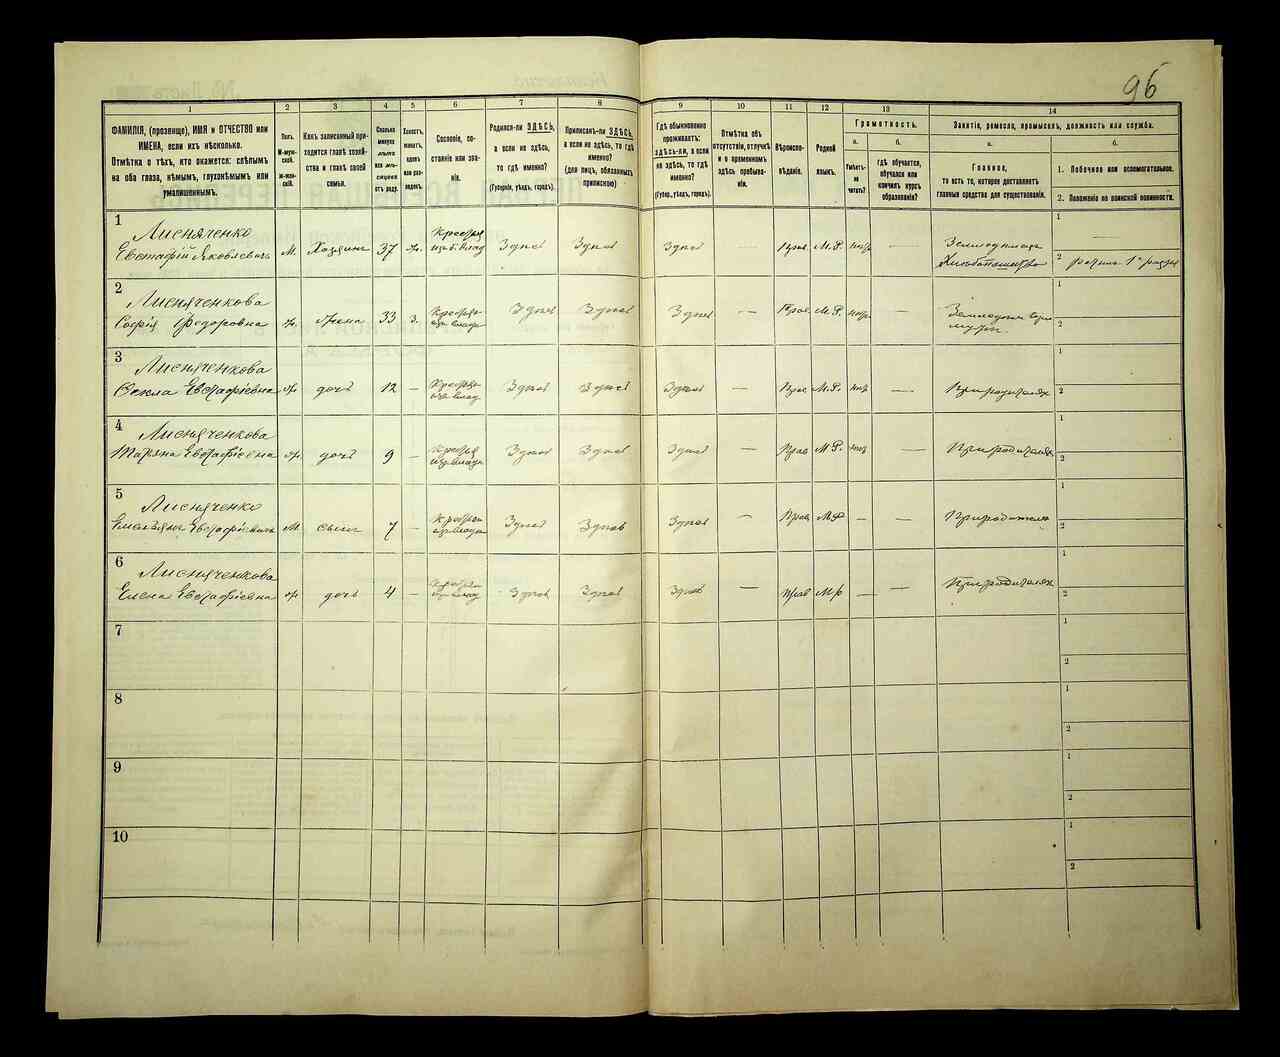 96
1
2
3
4
5
6
7
8
9
10
11
12
13
14
ФАМИЛІЯ, (прозвище), ИМЯ и ОТЧЕСТВО или
ИМЕНА, если ихъ нѣсколько.
Отмѣтка о тѣхъ, кто окажется: слѣпымъ
на оба глаза, нѣмымъ, глухонѣмымъ или
умалишеннымъ.
Полъ.
М-муж-
ской.
Ж-жен-
скій.
Какъ записанный при-
ходится главѣ хозяй-
ства и главѣ своей
семьи.
Сколько
минуло
лѣтъ
или мѣ-
сяцевъ
отъ роду.
Холостъ,
женатъ,
вдовъ
или раз-
веденъ.
Сословіе, со-
стояніе или зва-
ніе.
Родился-ли ЗДѢСЬ,
а если не здѣсь,
то гдѣ именно?
(Губернія, уѣздъ, городъ).
Приписанъ-ли ЗДѢСЬ,
а если не здѣсь, то гдѣ
именно?
(для лицъ, обязанныхъ
припискою)
Гдѣ обыкновенно
проживаетъ:
ЗДѢСЬ-ЛИ, а если
не здѣсь, то гдѣ
именно?
(Губер., уѣздъ, городъ).
Отмѣтка объ
отсутствіи, отлучкѣ
и о временномъ
здѣсь пребыва-
ніи.
Вѣроиспо-
вѣданіе.
Родной
языкъ.
Грамотность.
а.
Умѣетъ-
ли
читать?
б.
гдѣ обучается,
обучался или
кончилъ курсъ
образованія?
Занятіе, ремесло, промыселъ, должность или служба.
а.
Главное,
то есть то, которое доставляетъ
главныя средства для существованія.
б.
1. Побочное или вспомогательное.
2. Положеніе по воинской повинности.
1
Лисняченко
Евстафій Яковлевичъ М. Хозяинъ 37 Здѣсь Здѣсь Здѣсь — Прав М.Р. — Хлѣбопашество
1 —
2 ратникъ 1го
2
Лисняченкова
Софія Федоровна ж. Жена 33 Здѣсь Здѣсь Здѣсь — Прав М.Р. —
1
2
3
Лисняченкова
Евстафіевна ж дочь 12 — Здѣсь Здѣсь Здѣсь — Прав М.Р. — При родителях
1
2
4
Лисняченкова
Татьяна Евстафіевна ж. дочь 9 — Здѣсь Здѣсь Здѣсь — Прав М.Р. — При родителях
1
2
5
Лисняченко
Емельянъ Евстафіевичъ М сынъ 7 — Здѣсь Здѣсь Здѣсь — Прав М.Р — При родителях
1
2
6
Лисняченкова
Елена Евстафіевна ж. дочь 4 — Здѣсь Здѣсь Здѣсь — Прав М.р — — При родителях
1
2
7
1
2
8
1
2
9
1
2
10
1
2